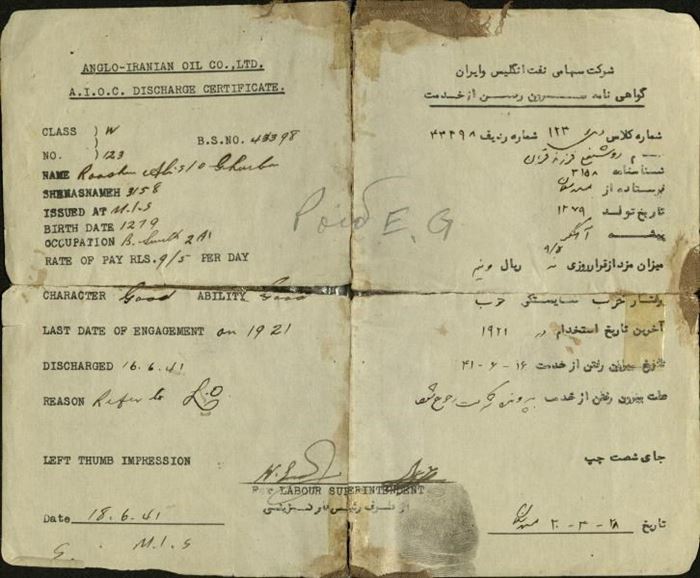 ANGLO-IRANIAN OIL CO.,LTD.
A.I.O.C. DISCHARGE CERTIFICATE.
CLASS ) W
B.S.NO. 43398
NO. ) 123
NAME
SHENASNAMEH 3158
ISSUED AT M.I.S
BIRTH DATE 1279
OCCUPATION B. Smith 2 A1
RATE OF PAY RLS. 9/5 PER DAY
CHARACTER Good ABILITY Good
LAST DATE OF ENGAGEMENT on 1921
DISCHARGED 16.6.41
REASON Refer to L.O
LEFT THUMB IMPRESSION
FOR LABOUR SUPERINTENDENT
Date 18.6.41
M.I.S
Paid E.G
شرکت سهامی نفت انگلیس وایران
گواهی نامه بیرون رفتن از خدمت
شماره کلاس ۱۲۳ شماره ردیف ۴۳۳۹۸
شناسنامه ۳۱۵۸
فرستاده از
تاریخ تولد ۱۲۷۹
پیشه آهنگر
میزان مزد ازقرارروزی نه ریال ونیم
رفتار خوب شایستگی خوب
آخرین تاریخ استخدام در ۱۹۲۱
تاریخ بیرون رفتن از خدمت ۱۶-۶-۴۱
علت بیرون رفتن از خدمت
جای شصت چپ
از طرف رئیس
تاریخ